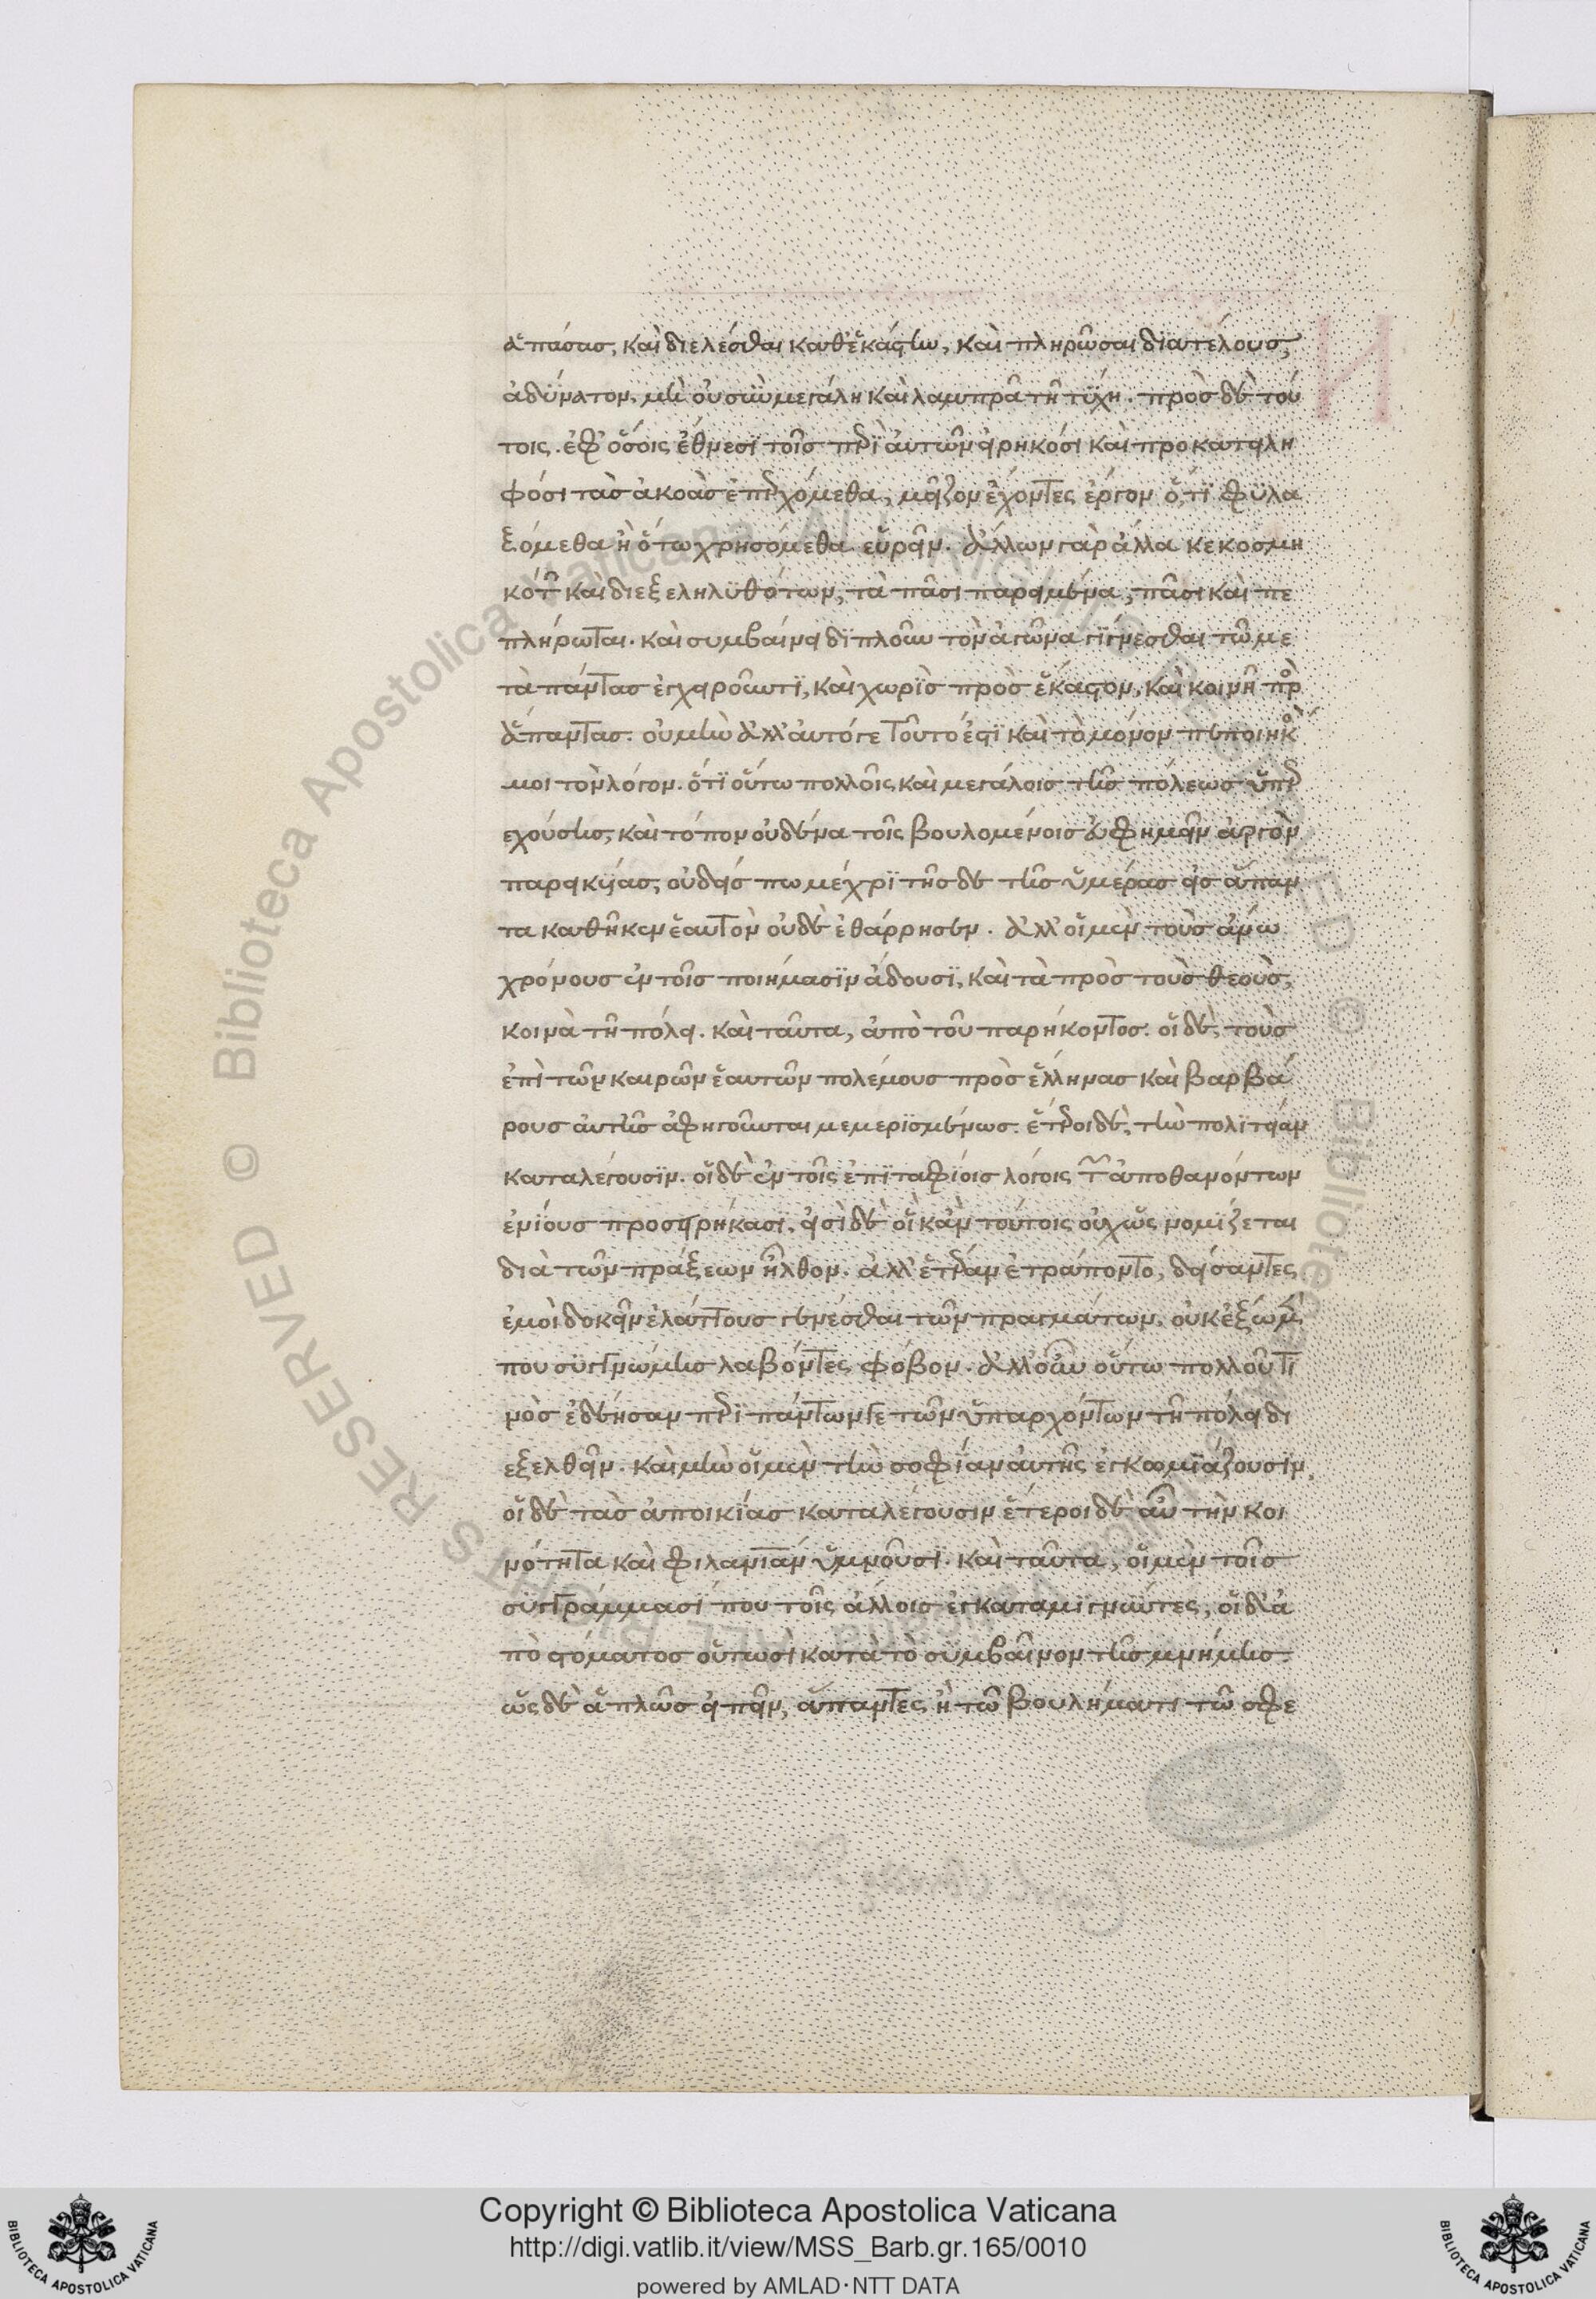 ἁπάσας, καὶ διελέσθαι καθ' ἑκάστην, καὶ πληρῶσαι διὰ τέλους,
ἀδύνατον. μὴ οὐ σὺν μεγάλη καὶ λαμπρᾶ τῆ τύχη. πρὸς δὲ τού
τοις. ἐφ' ὅσοις ἔθνεσι τοῖς περὶ αὐτῶν εἰρηκόσι καὶ προκατειλη
φόσι τὰς ἀκοὰς ἐπερχόμεθα, μεῖζον ἔχοντες ἔργον ὅ,τι φυλα
ξόμεθα ἢ ὅτω χρησόμεθα εὑρεῖν. ἄλλων γὰρ ἄλλα κεκοσμη
κότων καὶ διεξεληλυθότων, τὰ πᾶσι παρειμένα, πᾶσι καὶ πε
πλήρωται. καὶ συμβαίνει διπλοῦν τὸν ἀγῶνα γίγνεσθαι τῶ με
τὰ πάντας ἐγχειροῦντι, καὶ χωρὶς πρὸς ἕκαστον, καὶ κοινῆ πρὸς
ἅπαντας. οὐ μὴν ἀλλ' αὐτό γε τοῦτό ἐστι καὶ τὸ μόνον πεποιηκὸς
μοι τὸν λόγον. ὅτι οὕτω πολλοῖς καὶ μεγάλοις τῆς πόλεως ὑπερ
εχούσης, καὶ τόπον οὐδένα τοῖς βουλομένοις εὐφημεῖν ἀργὸν
παρεικυίας, οὐδείς πω μέχρι τῆσδε τῆς ἡμέρας εἰς ἅπαν
τα καθῆκεν ἑαυτὸν οὐδὲ ἐθάρρησεν. ἀλλ' οἱ μὲν τοὺς ἄνω
χρόνους ἐν τοῖς ποιήμασιν ἄδουσι, καὶ τὰ πρὸς τοὺς θεοὺς,
κοινὰ τῆ πόλει. καὶ ταῦτα, ἀπὸ τοῦ παρήκοντος. οἱ δὲ, τοὺς
ἐπὶ τῶν καιρῶν ἑαυτῶν πολέμους πρὸς ἕλληνας καὶ βαρβά
ρους αὐτῆς ἀφηγοῦνται μεμερισμένως. ἕτεροι δὲ, τὴν πολιτείαν
καταλέγουσιν. οἱ δὲ ἐν τοῖς ἐπιταφίοις λόγοις τῶν ἀποθανόντων
ἐνίους προσειρήκασι. εἰσὶ δὲ οἳ κἀν τούτοις οὐχ ὡς νομίζεται
διὰ τῶν πράξεων ἦλθον. ἀλλ' ἑτέραν ἐτράποντο, δείσαντες
ἐμοὶ δοκεῖν ἐλάττους γενέσθαι τῶν πραγμάτων. οὐκ ἔξω μέν
που συγγνώμης λαβόντες φόβον. ἀλλ' οὖν οὕτω πολλοῦ τι
νὸς ἐδέησαν περὶ πάντων γε τῶν ὑπαρχόντων τῆ πόλει δι
εξελθεῖν. καὶ μὴν οἱ μὲν τὴν σοφίαν αὐτῆς ἐγκωμιάζουσιν,
οἱ δὲ τὰς ἀποικίας καταλέγουσιν ἕτεροι δὲ αὖ τὴν κοι
νότητα καὶ φιλανίαν ὑμνοῦσι. καὶ ταῦτα, οἱ μὲν τοῖς
συγγράμμασί που τοῖς ἄλλοις ἐγκαταμιγνύντες, οἱ δ' ἀ
πὸ στόματος οὑτωσὶ κατὰ τὸ συμβαῖνον τῆς μνήμης
ὡς δὲ ἁπλῶς εἰπεῖν, ἅπαντες ἢ τῶ βουλήματι τῶ σφε
Copyright © Biblioteca Apostolica Vaticana
http://digi.vatlib.it/view/MSS_Barb.gr.165/0010
powered by AMLAD·NTT DATA